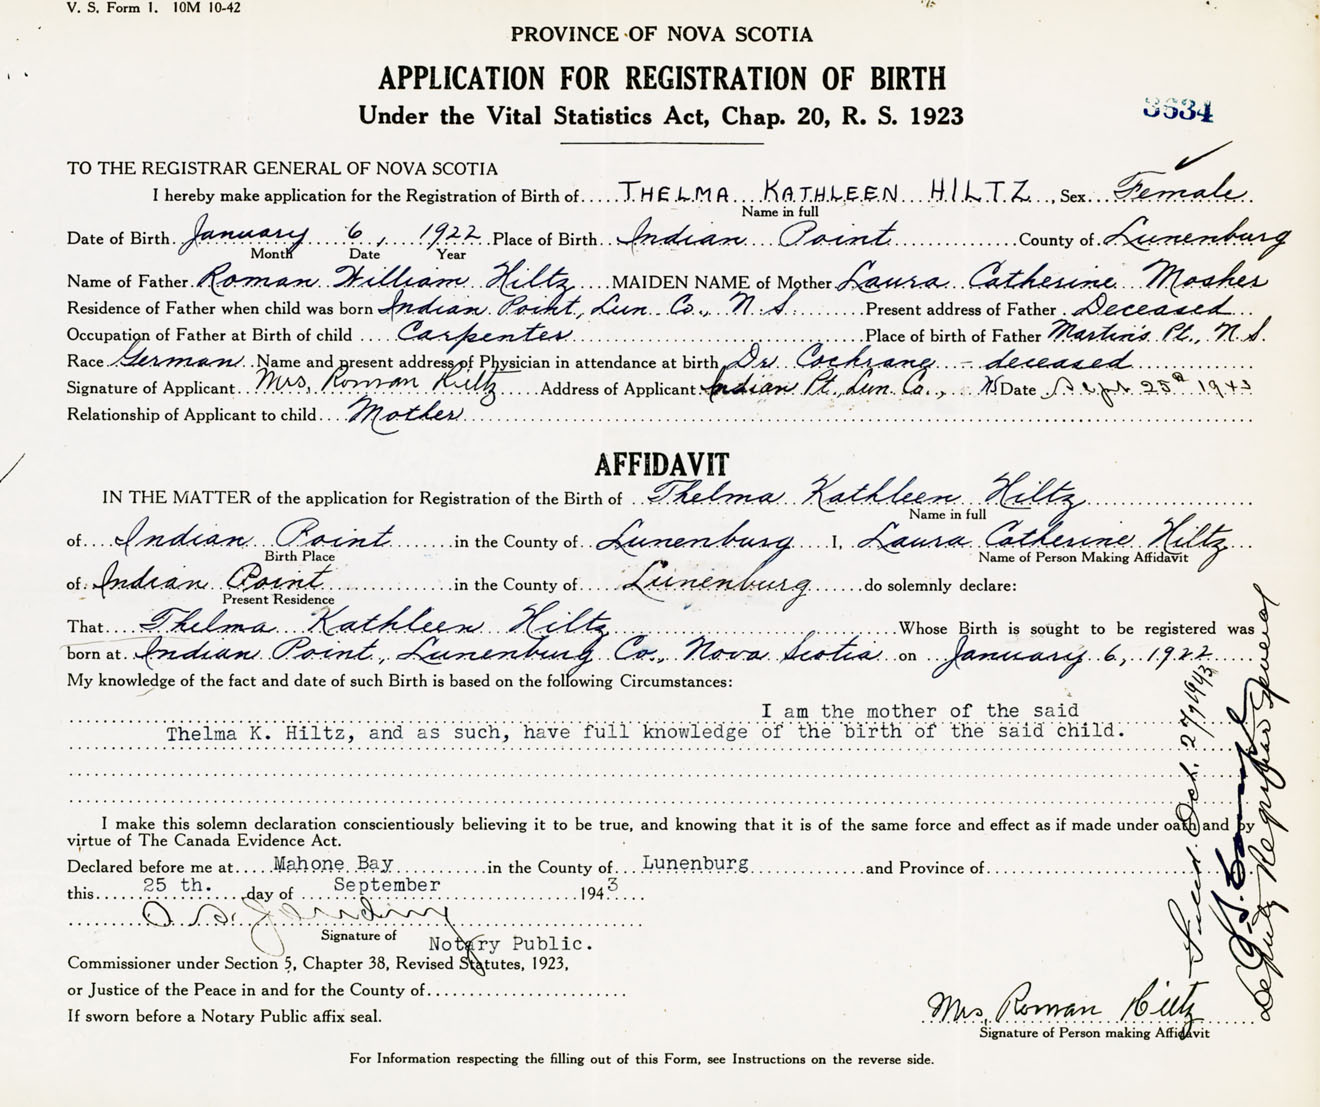 V. S. Form 1. 10M 10-42
PROVINCE OF NOVA SCOTIA
APPLICATION FOR REGISTRATION OF BIRTH
Under the Vital Statistics Act, Chap. 20, R. S. 1923
3634
TO THE REGISTRAR GENERAL OF NOVA SCOTIA
I hereby make application for the Registration of Birth of THELMA KATHLEEN HILTZ, Sex Female
Name in full
Date of Birth January 6, 1922 Place of Birth Indian Point County of Lunenburg
Month Date Year
Name of Father Roman William Hiltz MAIDEN NAME of Mother Laura Catherine Mosher
Residence of Father when child was born Indian Point, Lun. Co., N.S. Present address of Father Deceased
Occupation of Father at Birth of child Carpenter Place of birth of Father Martin's Pt., N.S.
Race German Name and present address of Physician in attendance at birth Dr. Cochrane - deceased
Signature of Applicant Mrs. Roman Hiltz Address of Applicant Indian Pt., Lun. Co., NS Date Sept 25th 1943
Relationship of Applicant to child Mother
AFFIDAVIT
IN THE MATTER of the application for Registration of the Birth of Thelma Kathleen Hiltz
Name in full
of Indian Point in the County of Lunenburg I, Laura Catherine Hiltz
Birth Place Name of Person Making Affidavit
of Indian Point in the County of Lunenburg do solemnly declare:
Present Residence
That Thelma Kathleen Hiltz Whose Birth is sought to be registered was
born at Indian Point, Lunenburg Co., Nova Scotia on January 6, 1922
My knowledge of the fact and date of such Birth is based on the following Circumstances:
I am the mother of the said
Thelma K. Hiltz, and as such, have full knowledge of the birth of the said child.
I make this solemn declaration conscientiously believing it to be true, and knowing that it is of the same force and effect as if made under oath and by
virtue of The Canada Evidence Act.
Declared before me at Mahone Bay in the County of Lunenburg and Province of
this 25 th. day of September 1943
Signature of Notary Public.
Commissioner under Section 5, Chapter 38, Revised Statutes, 1923,
or Justice of the Peace in and for the County of
If sworn before a Notary Public affix seal.
Mrs. Roman Hiltz
Signature of Person making Affidavit
For Information respecting the filling out of this Form, see Instructions on the reverse side.
Oct. 27, 1943
Deputy Registrar General